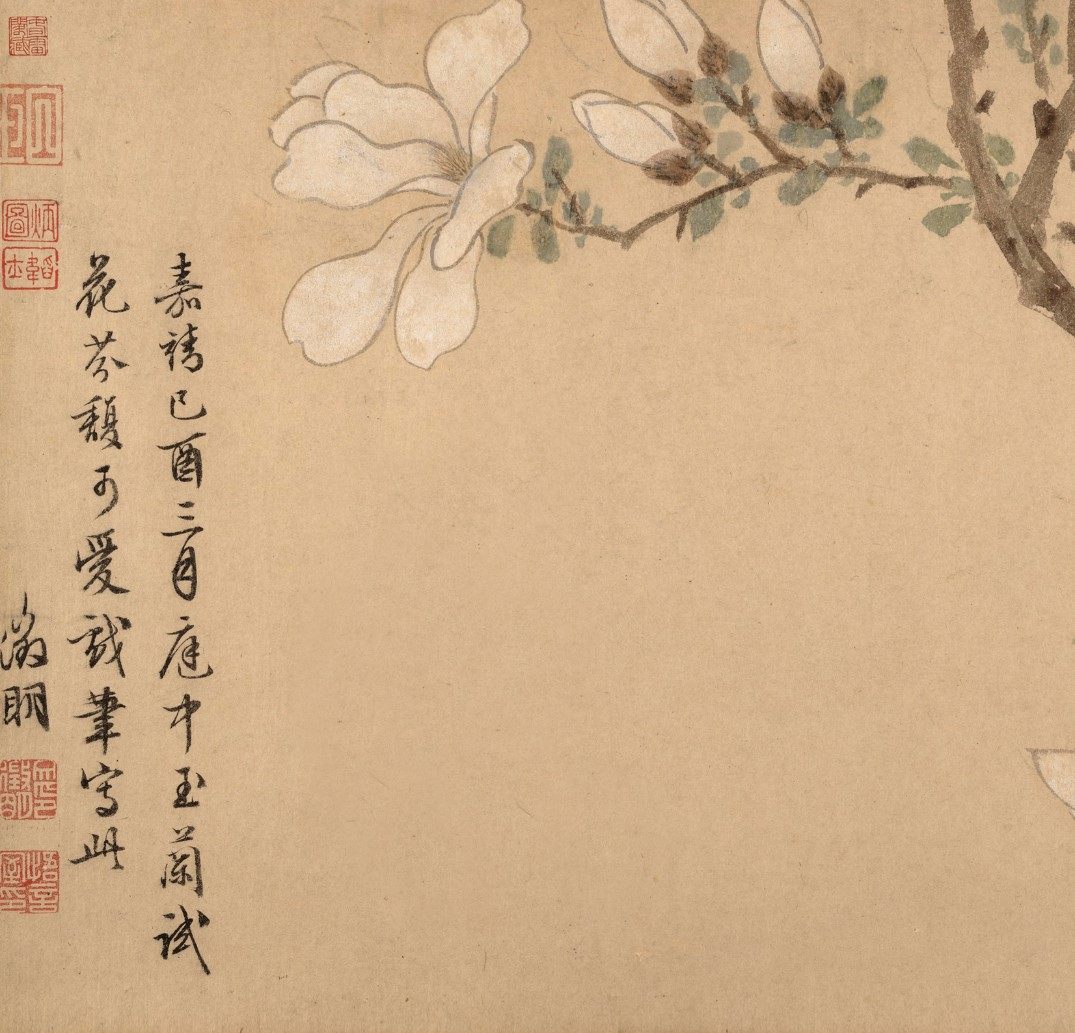 嘉靖己酉三月庭中玉蘭試
花芬馥可愛戲筆寫此
徵明
悟言室印